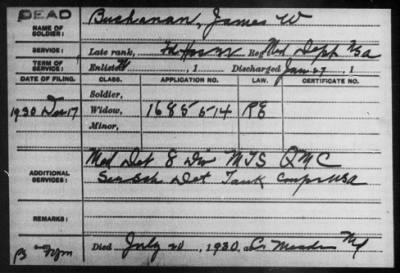 DEAD
NAME OF SOLDIER: Buchanan, James W
SERVICE: Late rank, Reg Med Dept USA
TERM OF SERVICE: Enlisted , 1 Discharged Jan 27 , 1
DATE OF FILING. CLASS. APPLICATION NO. LAW. CERTIFICATE NO.
Soldier,
1930 Dec 17 Widow, 1685514 RE
Minor,
ADDITIONAL SERVICES: Med Det 8 Div MTS QMC
Sec Det Tank Corps USA
REMARKS:
Died July 20, 1930, at Md